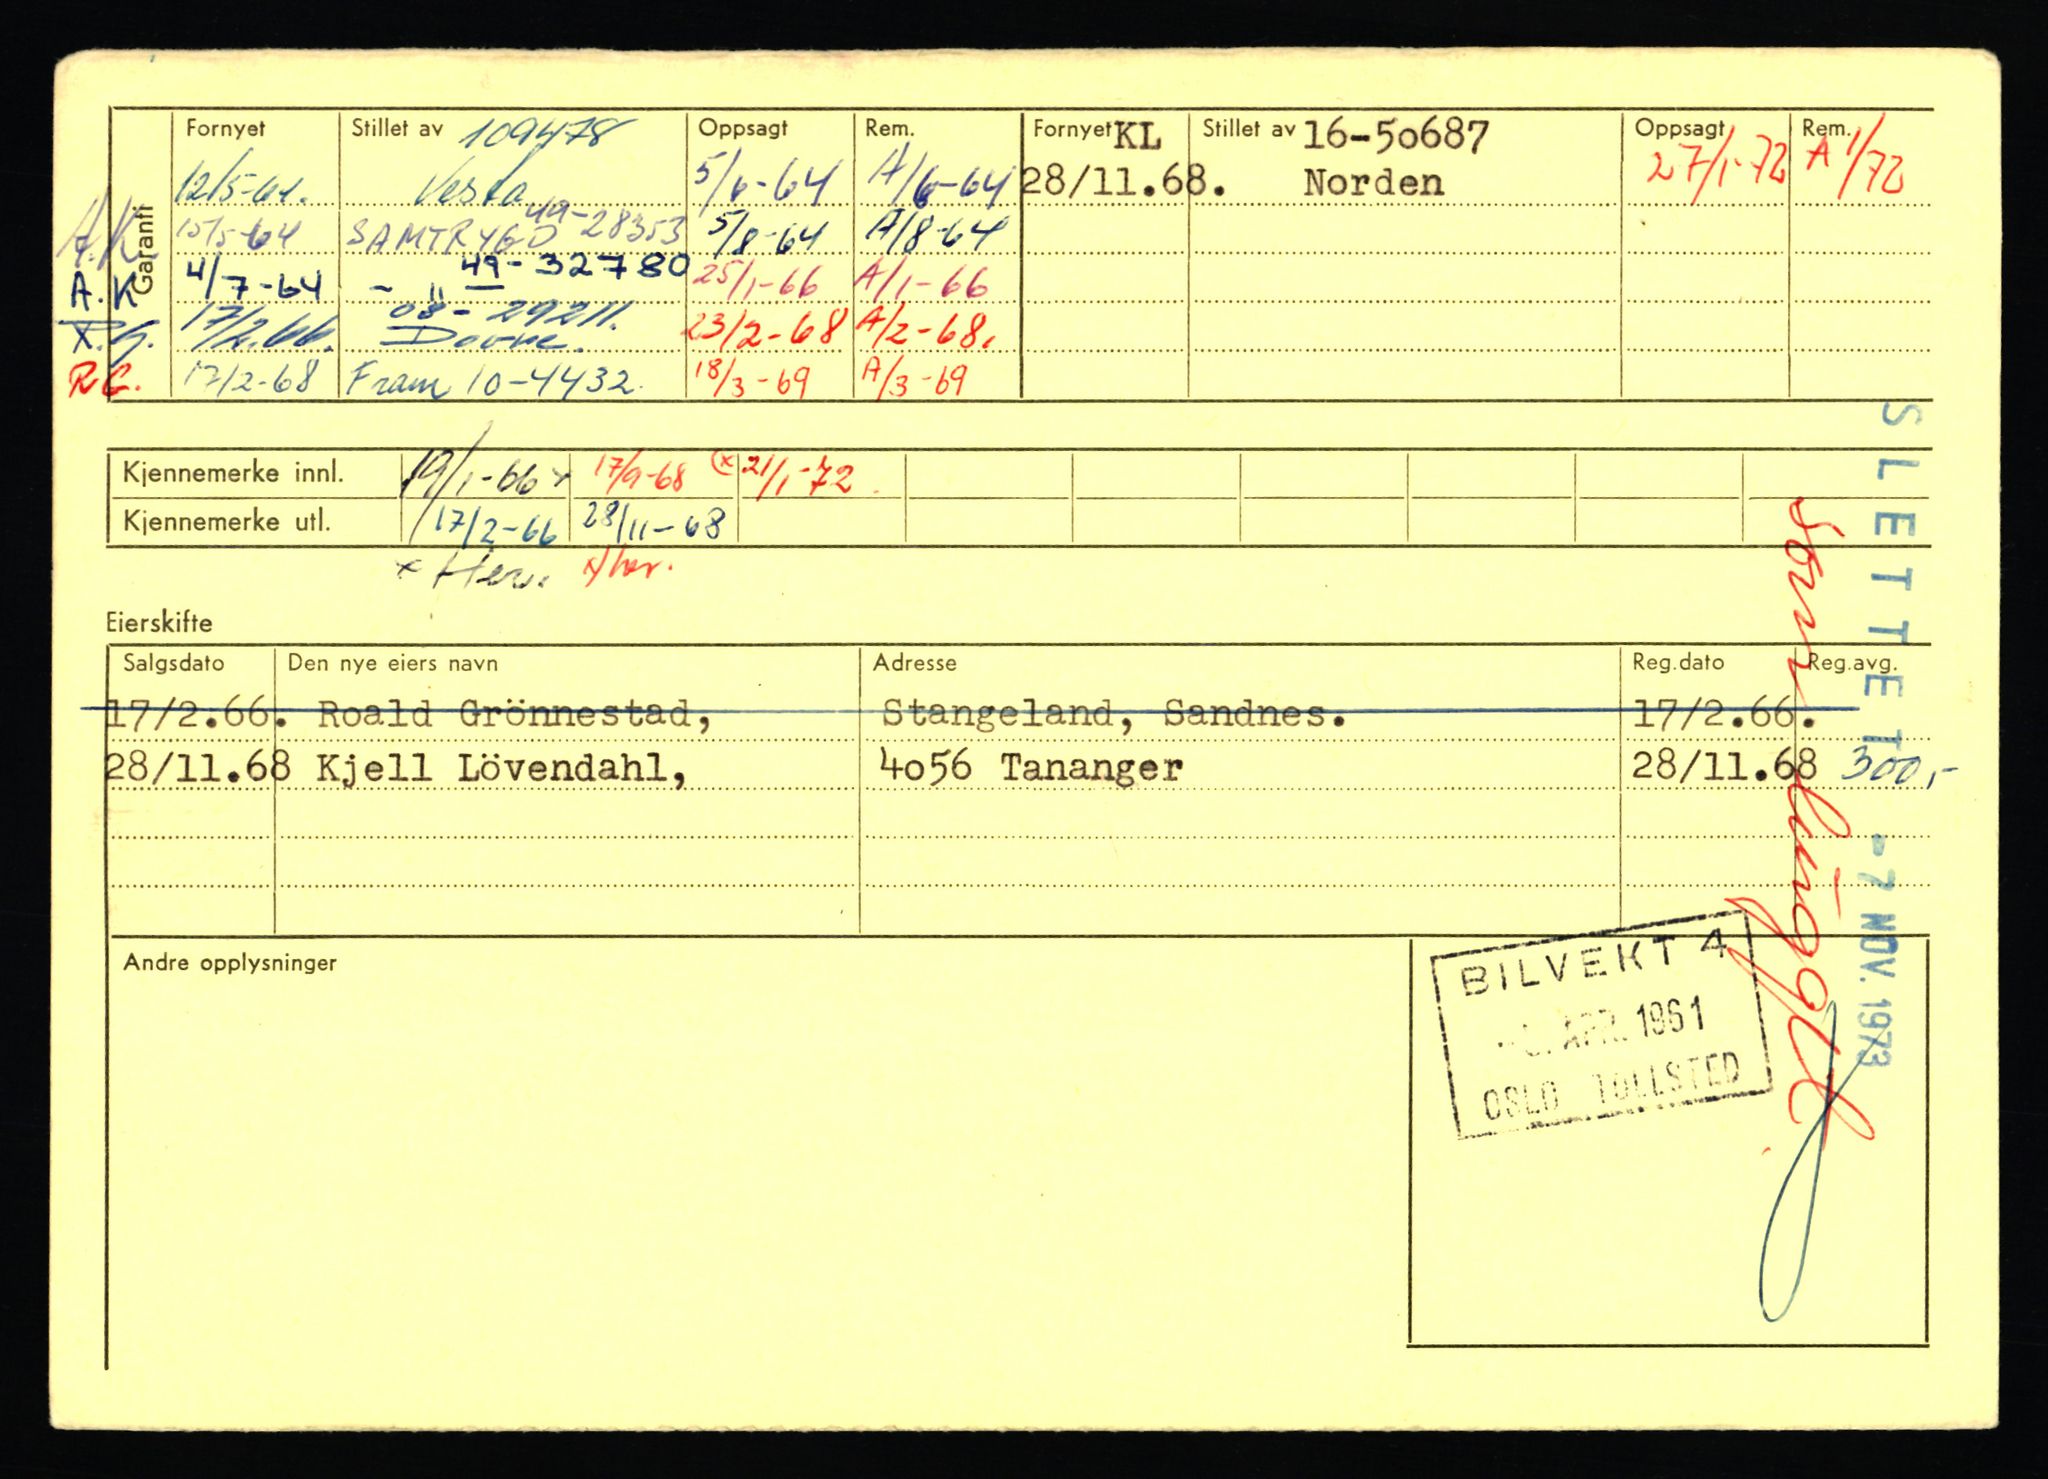 Garanti
Fornyet Stillet av 109478 Oppsagt Rem. Fornyet KL Stillet av 16-50687 Oppsagt Rem.
12/5-64. Vesta 5/6-64 A/6-64 28/11.68. Norden 27/1-72 A 1/72
A.K. 15/5-64 SAMTRYGD 49-28353 5/8-64 A/8-64
A.K 4/7-64 - " - 49-32780 25/1-66 A/1-66
17/2.66. 08-29211. Dovre. 23/2-68 A/2-68.
R.G. 17/2-68 Fram 10-4432. 18/3-69 A/3-69
Kjennemerke innl. 19/1-66 x 17/9-68 (x 21/1-72
Kjennemerke utl. 17/2-66 28/11-68
x Her. x/her.
Eierskifte
Salgsdato Den nye eiers navn Adresse Reg.dato Reg.avg.
17/2.66. Roald Grönnestad, Stangeland, Sandnes. 17/2.66.
28/11.68 Kjell Lövendahl, 4o56 Tananger 28/11.68 300,-
Andre opplysninger
BILVEKT 4
APR. 1961
OSLO TOLLSTED
SLETTET -7 NOV. 1973